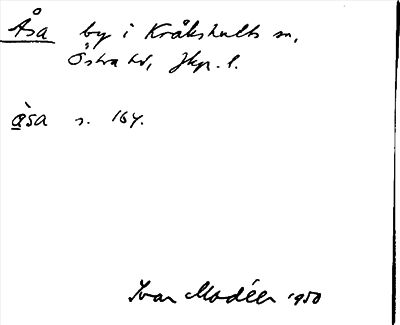 Åsa by i Kråkshults sn,
Östra hd, Jkp. l.
åsa s. 164.
Ivar Modéer 1950